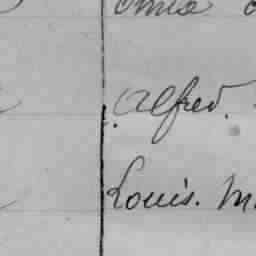 Alfred.
Louis. M.